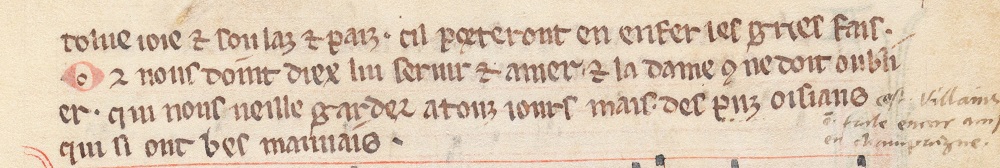 tolue ioie ⁊ soulaz ⁊ paiz · cil porteront en enfer les gries fais ·
Oꝛ nous doint diex lui seruir ⁊ amer · ⁊ la dame q̄ ne doit oubli
er · qui nous ueille garder a touz iours mais · des puz oisiaus
qui si ont bes mauuais ·
Villaine
encor
en champaigne.